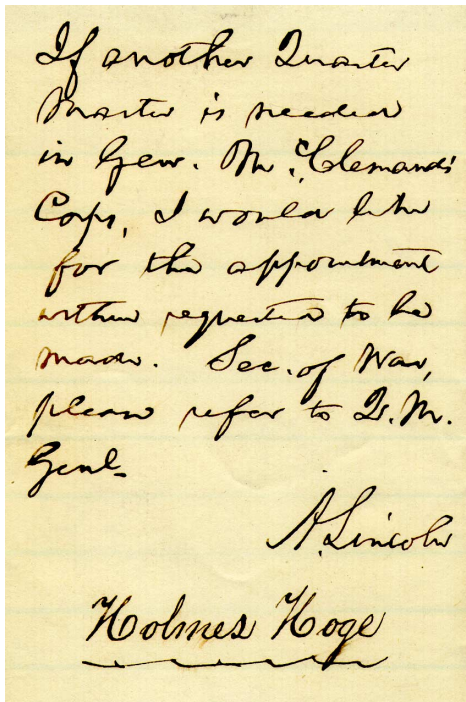 If another Quarter
Master is needed
in Gen. McClernand's
Corps, I would like
for the appointment
within requested to be
made. Sec. of War,
please refer to Q.M.
Genl.
A. Lincoln
Holmes Hoge